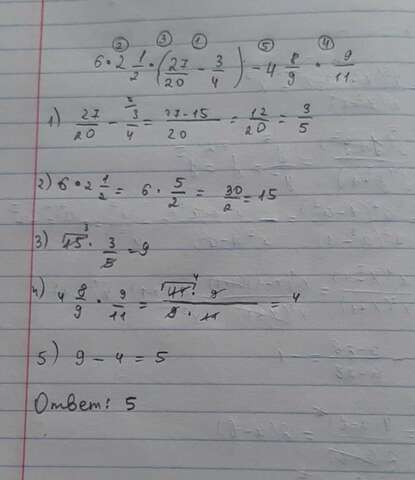 ② ③ ① ⑤ ④
6 · 2 1/2 · (27/20 − 3/4) − 4 8/9 · 9/11
1) 27/20 − 3/4 = 27-15/20 = 12/20 = 3/5
2) 6 · 2 1/2 = 6 · 5/2 = 30/2 = 15
3) 15 · 3/5 = 9
4) 4 8/9 · 9/11 = 44 · 9/9 · 11 = 4
5) 9 − 4 = 5
Ответ: 5